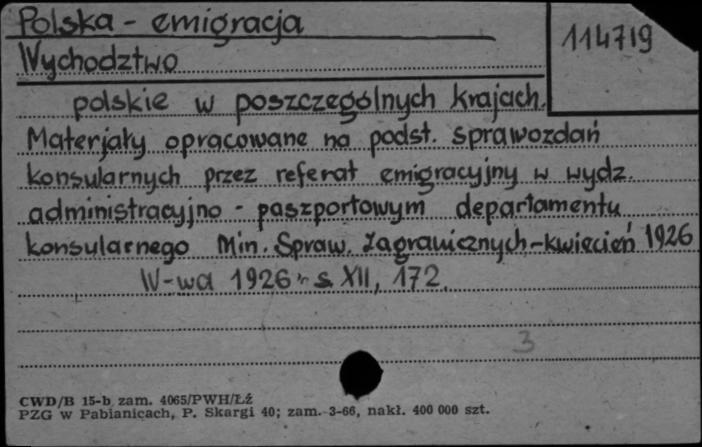 Polska - emigracja
114719
Wychodztwo
polskie w poszczególnych krajach.
Materjały opracowane na podst. sprawozdań
konsularnych przez referat emigracyjny w wydz.
administracyjno - paszportowym departamentu
konsularnego Min. Spraw. Zagranicznych-kwiecień 1926
W-wa 1926 s. XII, 172.
3
CWD/B 15-b zam. 4065/PWH/Łź
PZG w Pabianicach, P. Skargi 40; zam. 3-66, nakł. 400 000 szt.